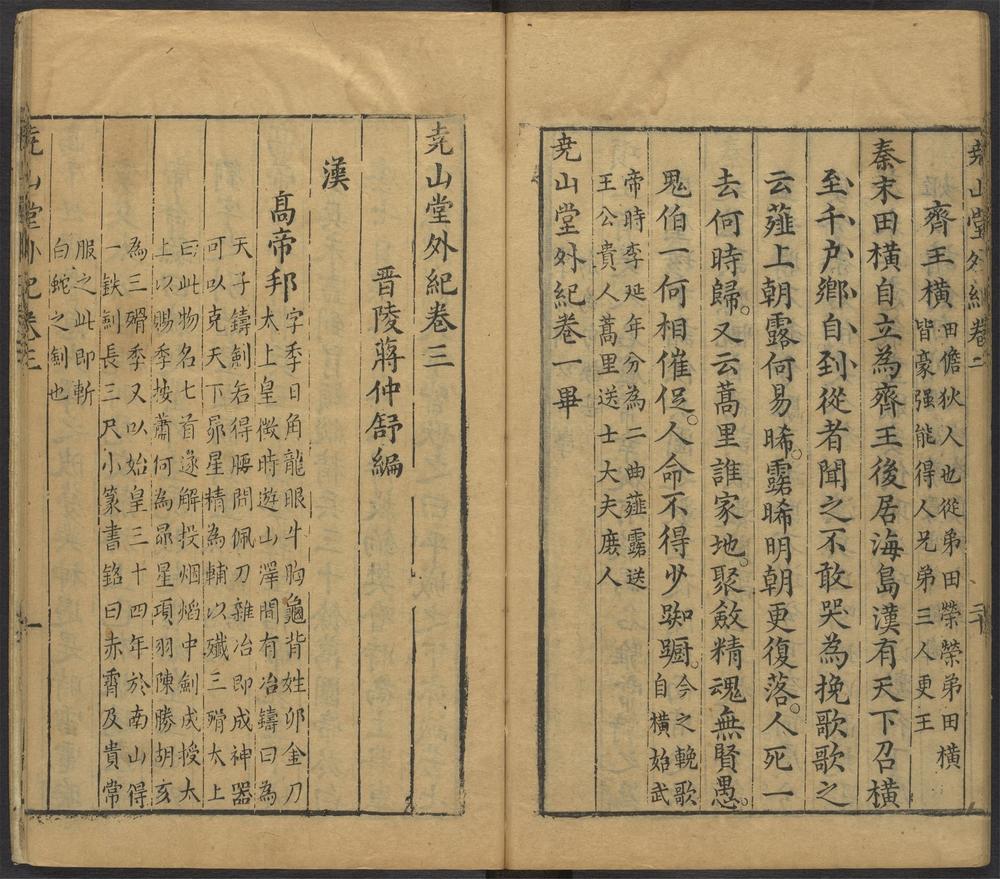 堯山堂外紀卷二
齊王橫
田儋狄人也從弟田榮榮弟田橫
皆豪强能得人兄弟三人更王
秦末田橫自立為齊王後居海島漢有天下召橫
至千户鄉自刭從者聞之不敢哭為挽歌歌之
云薤上朝露何易晞露晞明朝更復落人死一
去何時歸又云蒿里誰家地聚斂精魂無賢愚
鬼伯一何相催促人命不得少踟蹰
今之輓歌
自橫始武
帝時李延年分為二曲薤露送
王公貴人蒿里送士大夫庶人
堯山堂外紀卷一畢
堯山堂外紀卷三
晉陵蔣仲舒編
漢
高帝邦
字季日角龍眼牛胸龜背姓卯金刀
太上皇微時遊山澤間有冶鑄曰為
天子鑄劍若得腰間佩刀雜冶即成神器
可以克天下昴星精為輔以殲三猾太上
曰此物名七首遂解投烟熖中劍成授太
上以賜季按蕭何為昴星項羽陳勝胡亥
為三猾季又以始皇三十四年於南山得
一鉄劍長三尺小篆書銘曰赤霄及貴常
服之此即斬
白蛇之劍也
堯山堂外紀卷三
一